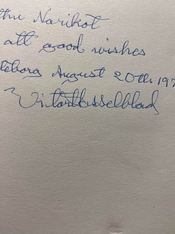 thu Narikot
all good wishes
teborg August 20th 197
Victor Hasselblad